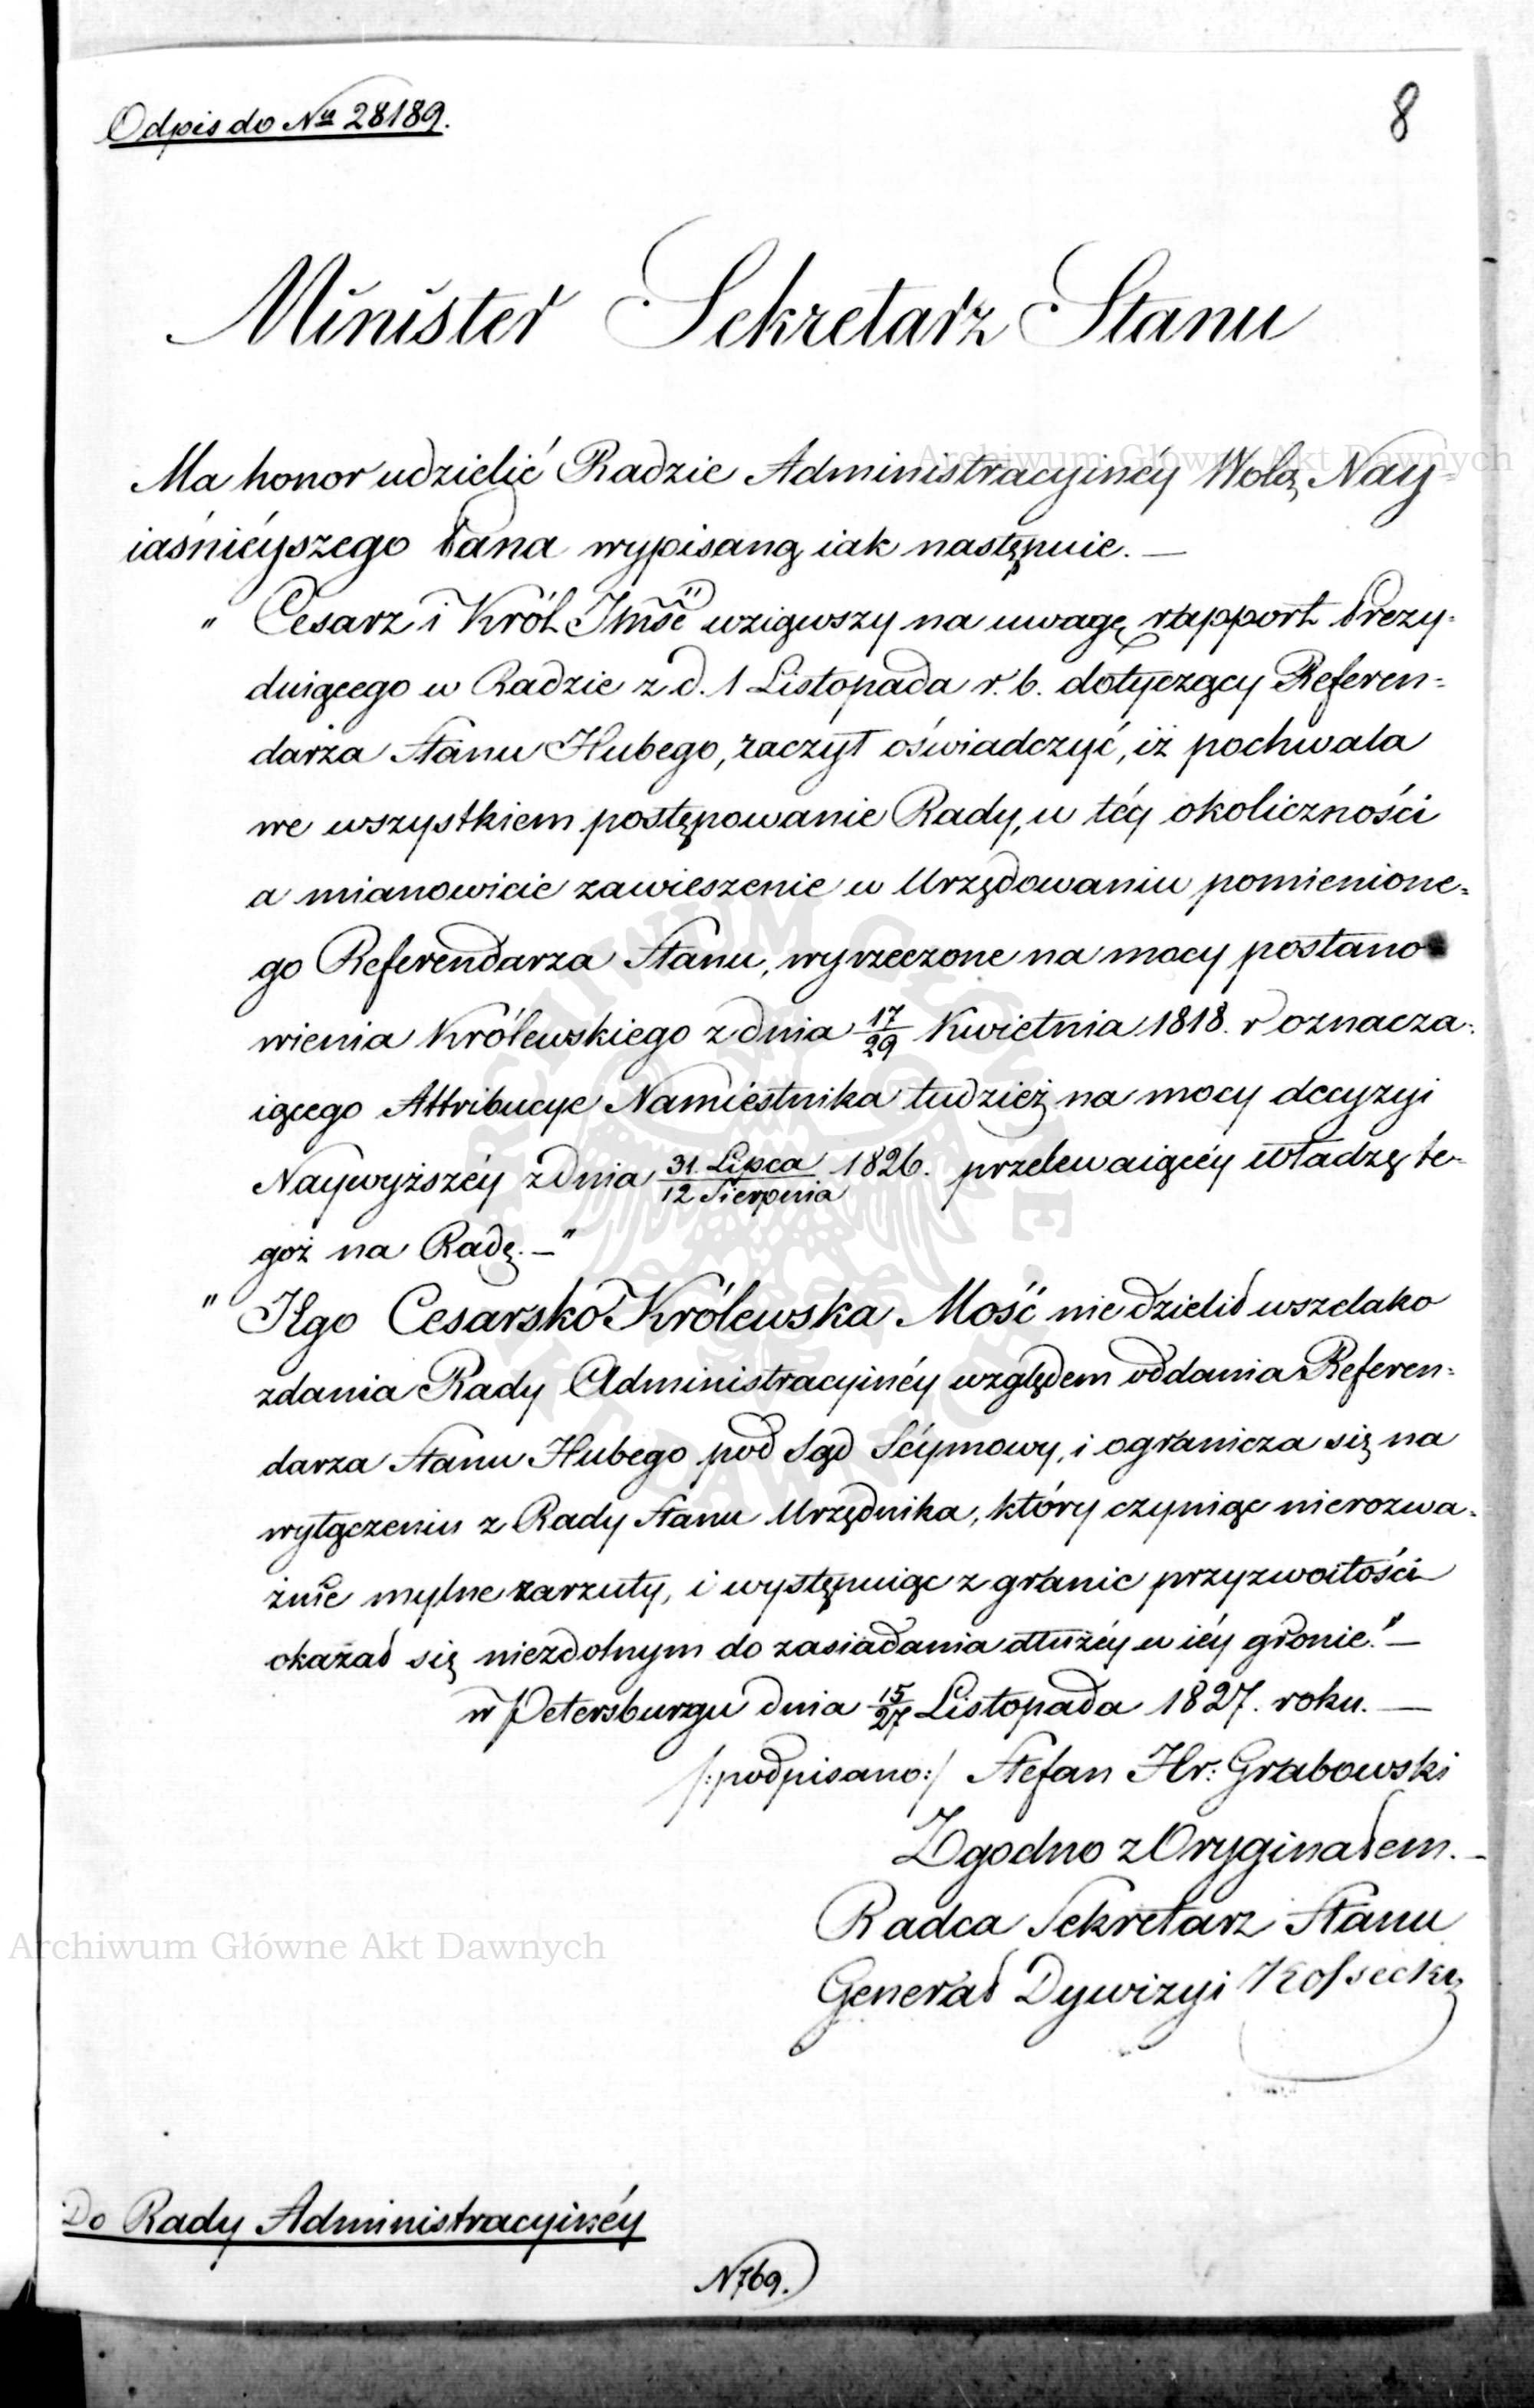 Odpis do Nru 28189.
8
Minister Sekretarz Stanu
Ma honor udzielić Radzie Administracyinéy Wolą Nay-
iaśniéyszego Pana wypisaną iak następuie. —
" Cesarz i Król Jmść wziąwszy na uwagę rapport Prezy-
duiącego w Radzie z d. 1 Listopada r. b. dotyczący Referen-
darza Stanu Hubego, raczył oświadczyć, iż pochwala
we wszystkiem postępowanie Rady, w téy okoliczności
a mianowicie zawieszenie w Urzędowaniu pomienione-
go Referendarza Stanu, wyrzeczone na mocy postano
wienia Królewskiego z dnia 17/29 Kwietnia 1818. r oznacza-
iącego Attribucye Namiestnika tudzież na mocy decyzyi
Naywyższéy z dnia 31. Lipca/12 Sierpnia 1826. przelewaiącéy władzę te-
goż na Radę. — "
" JEgo Cesarsko Królewska Mość nie dzielił wszelako
zdania Rady Administracyinéy względem oddania Referen-
darza Stanu Hubego pod Sąd Séymowy, i ogranicza się na
wyłączeniu z Rady Stanu Urzędnika, który czyniąc nierozwa-
żnie mylne zarzuty, i występuiąc z granic przyzwoitości
okazał się niezdolnym do zasiadania dłużéy w iéy gronie." —
w Petersburgu dnia 15/27 Listopada 1827. roku. —
/:podpisano:/ Stefan Hr: Grabowski
Zgodno z Oryginałem. —
Radca Sekretarz Stanu
Generał Dywizyi Kossecki
Do Rady Administracyinéy
N 769.
Archiwum Główne Akt Dawnych
Archiwum Główne Akt Dawnych
ARCHIWUM GŁÓWNE AKT DAWNYCH